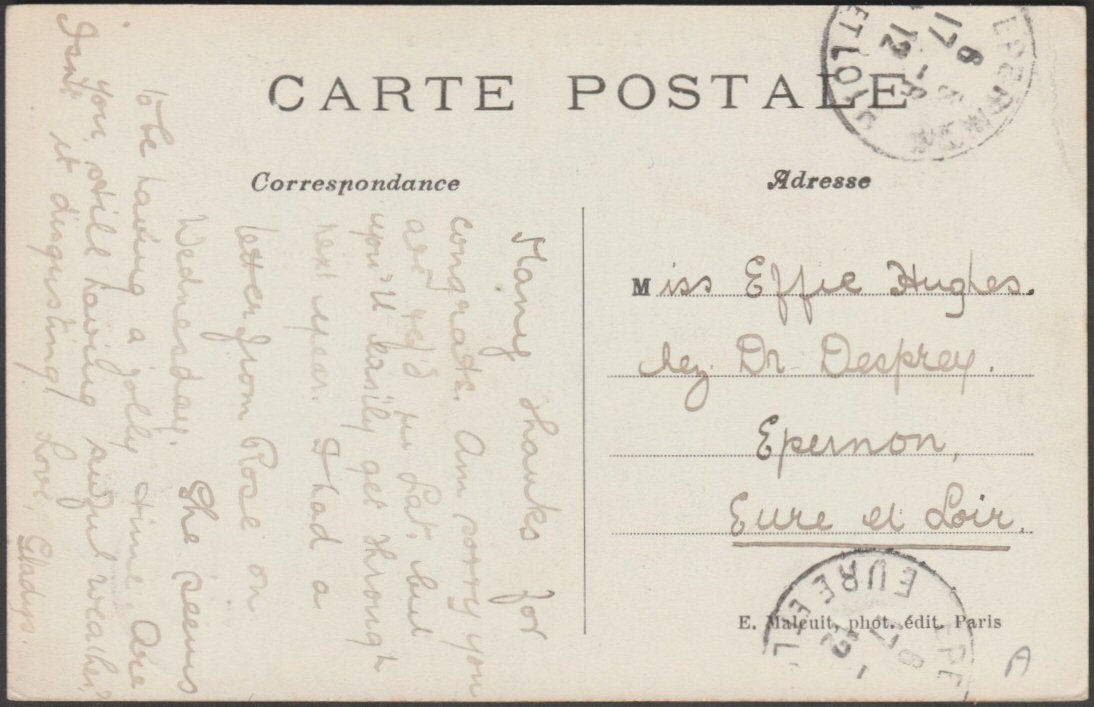 CARTE POSTALE
Correspondance
Adresse
Many thanks for
congrats. Am sorry you
are in Lat, but
you'll easily get through
next year. I had a
letter from Rose on
Wednesday. She seems
to be having a jolly time. Are
you still having awful weather?
Isn't it disgusting! Love, Gladys.
Miss Effie Hughes.
chez Dr Desprez.
Epernon,
Eure et Loir.
E. Maleuit, phot. édit. Paris
A
EPERNON
17 8
12
ET LOIR
EPE
EURE ET L
17 8
12